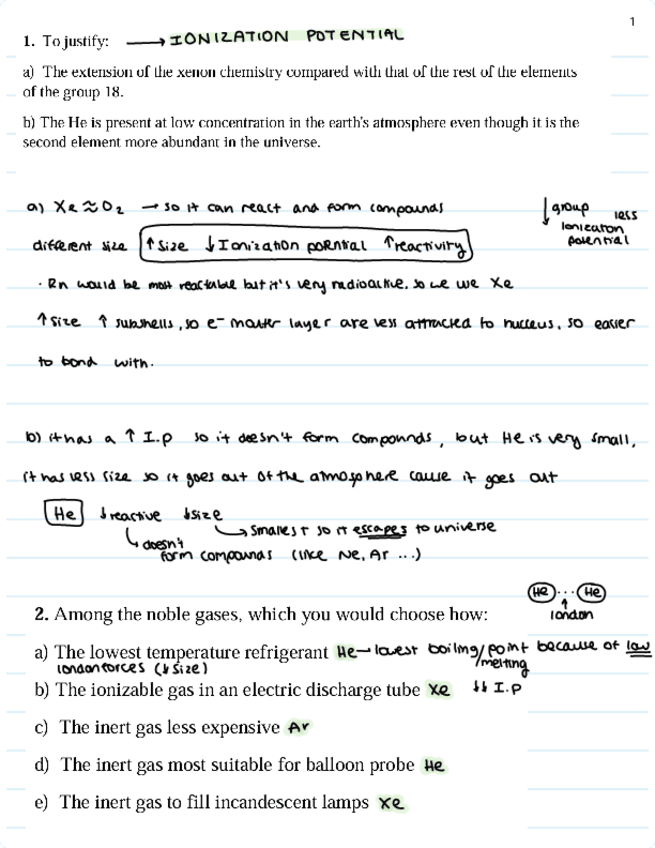 1
1. To justify: → IONIZATION POTENTIAL
a) The extension of the xenon chemistry compared with that of the rest of the elements
of the group 18.
b) The He is present at low concentration in the earth's atmosphere even though it is the
second element more abundant in the universe.
a) Xe ≈ O₂ → so it can react and form compounds
↓ group less
ionization
potential
different size ↑ size ↓ Ionization potential ↑ reactivity
· Rn would be most reactable but it's very radioactive, so we use Xe
↑ size ↑ subshells, so e⁻ layer are less attracted to nucleus, so easier
to bond with.
b) it has a ↑ I.P so it doesn't form compounds, but He is very small,
it has less size so it goes out of the atmosphere cause it goes out
He ↓ reactive ↓ size
↳ smallest so it escapes to universe
↳ doesn't
form compounds (like Ne, Ar ...)
He ... He
↑
london
2. Among the noble gases, which you would choose how:
a) The lowest temperature refrigerant He → lowest boiling/point because of low
/melting
london forces (↓ size)
b) The ionizable gas in an electric discharge tube Xe ↓↓ I.P
c) The inert gas less expensive Ar
d) The inert gas most suitable for balloon probe He
e) The inert gas to fill incandescent lamps Xe